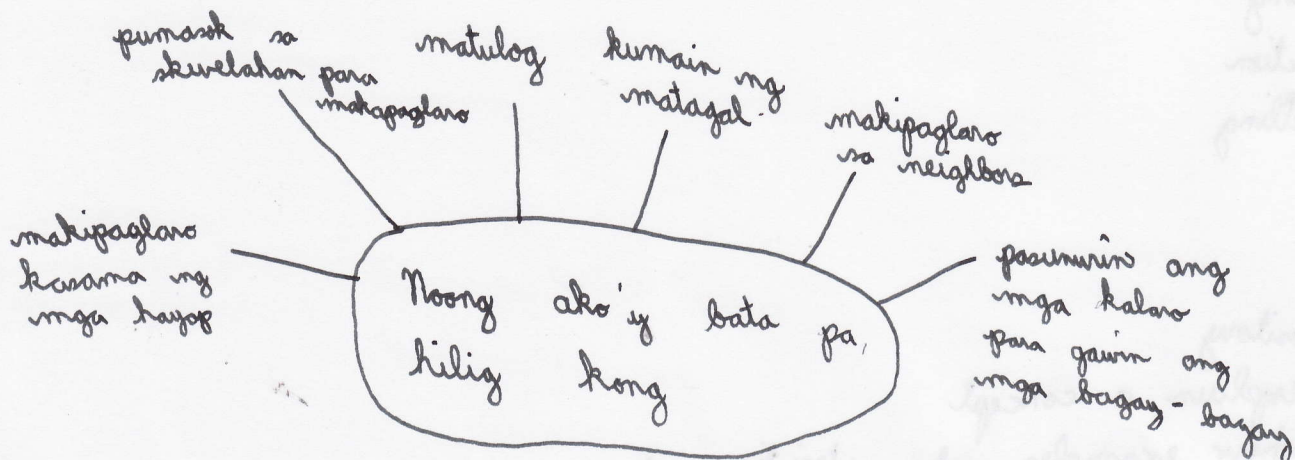 pumasok sa
skwelahan para
makapaglaro
matulog
kumain ng
matagal.
makipaglaro
sa neighbors
makipaglaro
kasama ng
mga hayop
Noong ako'y bata pa,
hilig kong
pasunurin ang
mga kalaro
para gawin ang
mga bagay-bagay